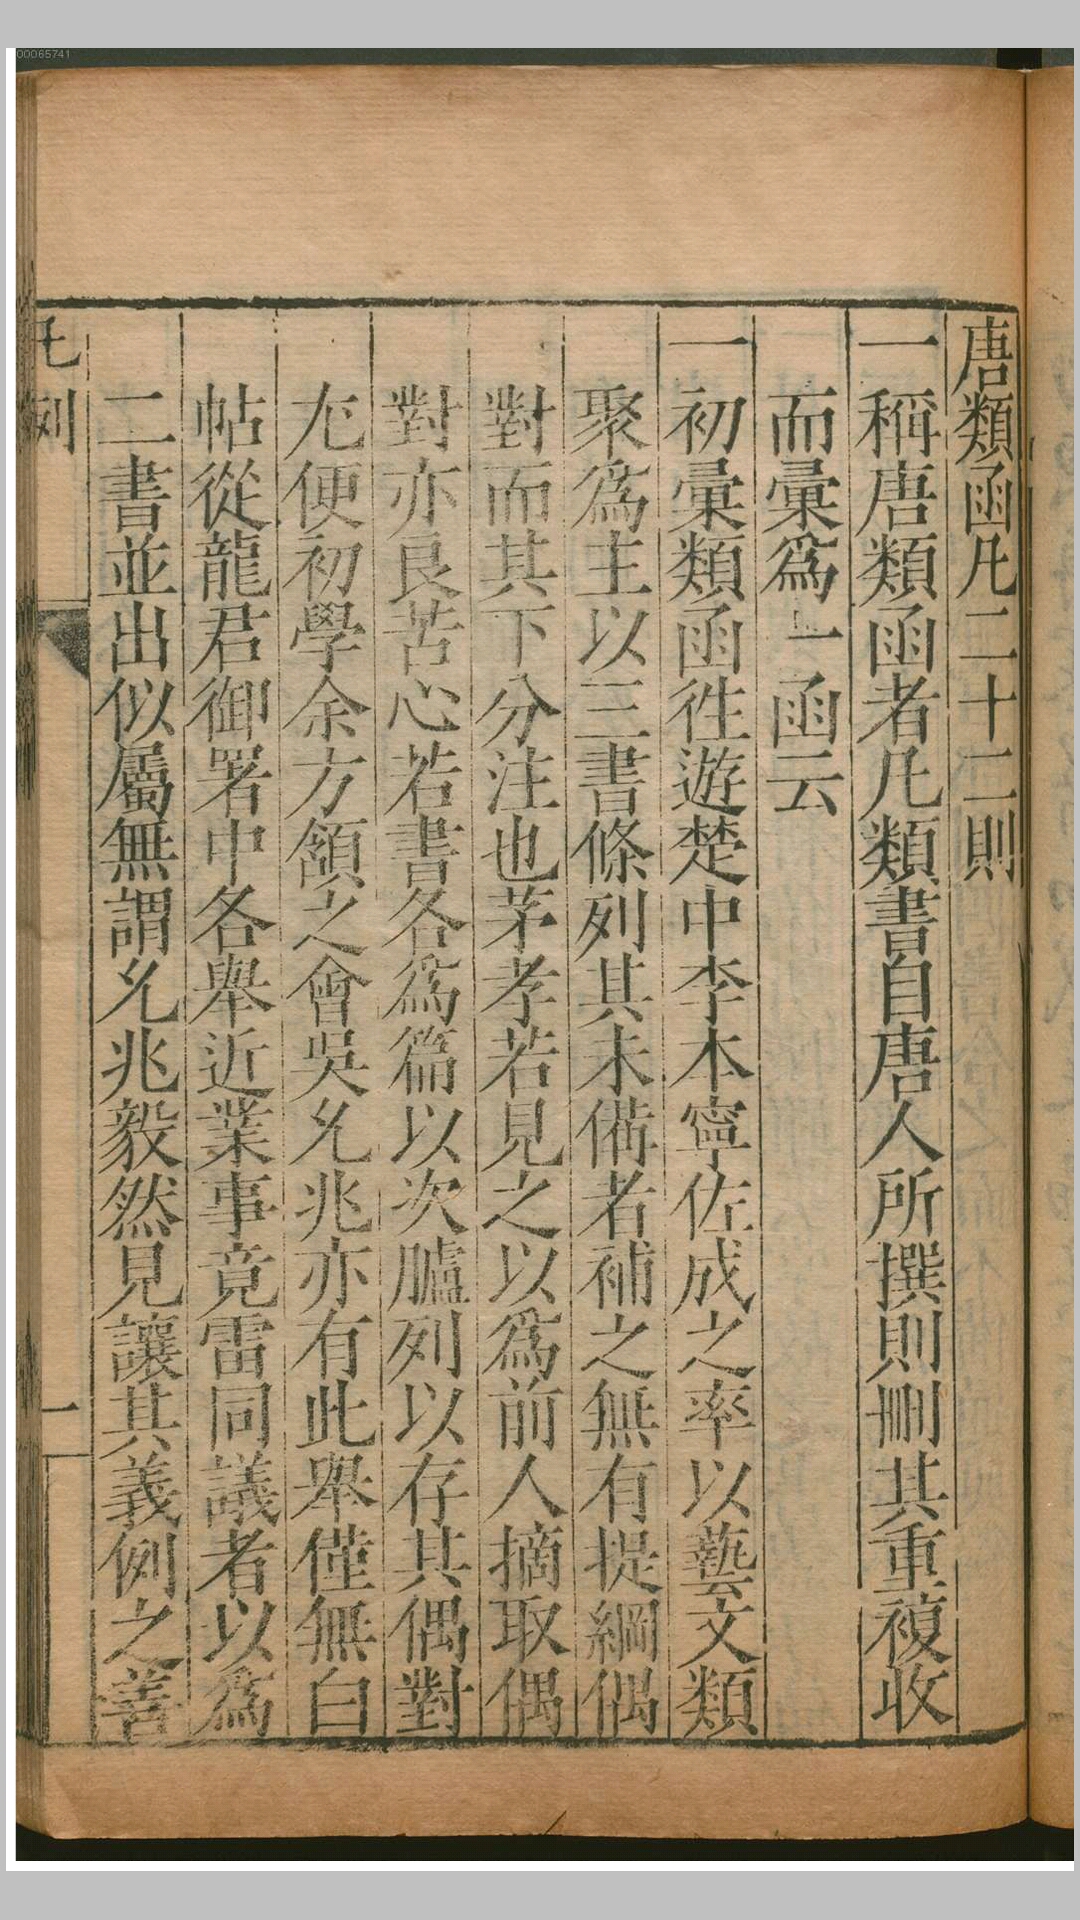 00065741
唐類函凡二十二則
一稱唐類函者凡類書自唐人所撰則刪其重複收
而彙爲一函云
一初彙類函徃遊楚中李本寧佐成之率以藝文類
聚爲主以三書條列其未俻者補之無有提綱偶
對而其下分注也茅孝若見之以爲前人摘取偶
對亦良苦心若書各爲篇以次臚列以存其偶對
尤便初學余方頷之會吳允兆亦有此舉僅無白
帖從龍君御署中各舉近業事竟雷同議者以爲
二書並出似屬無謂允兆毅然見讓其義例之善
凡例
一